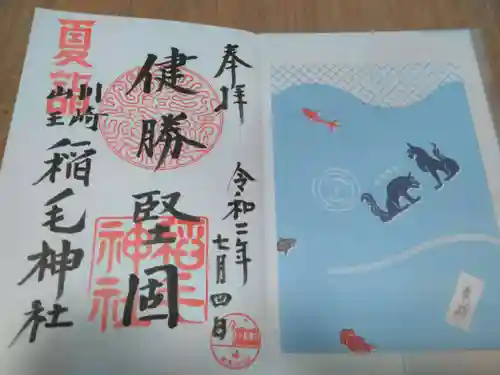 奉拝
令和二年七月四日
健勝堅固
夏詣
川崎山王
稲毛神社
稲毛神社